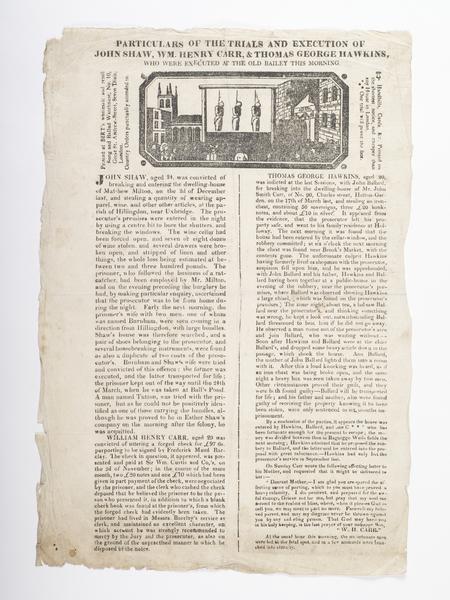 PARTICULARS OF THE TRIALS AND EXECUTION OF
JOHN SHAW, WM. HENRY CARR, & THOMAS GEORGE HAWKINS,
WHO WERE EXECUTED AT THE OLD BAILEY THIS MORNING.
Printed at BIRT's wholesale and retail
Song and Ballad Warehouse, No. 10,
Great St. Andrew-Street, Seven Dials,
London.
Country Orders punctually attended to.
Handbills, Cards &c. Printed on
the shortest notice, and cheaper than
any House in London.
One trial will prove the fact.
JOHN SHAW, aged 34, was convicted of
breaking and entering the dwelling-house
of Matthew Milton, on the 2d of December
last, and stealing a quantity of wearing ap-
parel, wine, and other articles, at the pa-
rish of Hillingdon, near Uxbridge. The pro-
secutor's premises were entered in the night
by using a centre bit to bore the shutters, and
breaking the windows. The wine cellar had
been forced open, and seven or eight dozen
of wine stolen, and several drawers were bro-
ken open, and stripped of linen and other
things, the whole loss being estimated at be-
tween two and three hundred pounds. The
prisoner, who followed the business of a rat-
catcher, had been employed by Mr. Milton;
and on the evening preceding the burglary he
had, by making particular enquiry, ascertained
that the prosecutor was to be from home du-
ring that night. Early the next morning, the
prisoner's wife with two men, one of whom
was named Burnham, were seen coming in a
direction from Hillingdon, with large bundles.
Shaw's house was therefore searched, and a
pair of shoes belonging to the prosecutor, and
several housebreaking instruments, were found
as also a duplicate of two coats of the prose-
cutor's. Burnham and Shaw's wife were tried
and convicted of this offence; the former was
executed, and the latter transported for life;
the prisoner kept out of the way until the 24th
of March, when he was taken at Ball's Pond.
A man named Tattion, was tried with the pri-
soner, but as he could not be positively iden-
tified as one of those carrying the bundles, al-
though he was proved to be in Esther Shaw's
company on the morning after the felony, he
was acquitted.
WILLIAM HENRY CARR, aged 20 was
convicted of uttering a forged check for £97 6s.
purporting to be signed by Frederick Mont Bar-
clay. The check in question, it appeared, was pre-
sented and paid at Sir Wm. Curtis and Co.'s, on
the 2d of November; in the course of the same
month, two £20 notes and one £10 which had been
given in part payment of the check, were negociated
by the prisoner, and the clerk who cashed the check
deposed that he believed the prisoner to be the per-
son who presented it, in addition to which a blank
check book was found at the prisoner's, from which
the forged check had evidently been taken. The
prisoner had lived in Messrs Boothy's service as
clerk, and maintained an excellent character, on
which account he was strongly recommended to
mercy by the Jury and the prosecutor, as also on
the ground of the unpractised manner in which he
disposed of the notes.
THOMAS GEORGE HAWKINS, aged 20,
was indicted at the last Sessions, with John Ballard,
for breaking into the dwelling-house of Mr. John
Smith Carr, of No. 90, Charles street, Hatton-Gar-
den, on the 17th of March last, and stealing an iron
chest, containing 50 sovereigns, three £20 bank-
notes, and about £10 in silver. It appeared from
the evidence, that the prosecutor left his pro-
perty safe, and went to his family residence at Hol-
loway. The next morning it was found that the
house had been entered by the cellar-window, and the
robbery committed; at six o'clock the next morning
the chest was found near Brook's Market, with the
contents gone. The unfortunate culprit Hawkins
having formerly lived as shopman with the prosecutor,
suspicion fell upon him, and he was apprehended,
with John Ballard and his father, Hawkins and Bal-
lard having been together at a public-house on the
evening of the robbery, near the prosecutor's pre-
mises, where Ballard was observed shewing Hawkins
a large chisel, (which was found on the prosecutor's
premises.) The same night, about ten, a lad saw Bal-
lard near the prosecutor's, and thinking something
was wrong, he kept a look out, notwithstanding Bal-
lard threatened to beat him if he did not go away.
He observed a man come out of the prosecutor's area
and join Ballard, who was waiting without.—
Soon after Hawkins and Ballard were at the elder
Ballard's, and dropped some heavy article down in the
passage, which shook the house. Ann Ballard,
the mother of John Ballard lighted them into a room
with it. After this a loud knocking was heard, as if
an iron chest was being broke open, and the same
night a heavy box was seen taken away by two men.
Other circumstances proved their guilt, and they
were both found guilty—Ballard will be transported
for life; and his father and mother, who were found
guilty of receiving the property knowing it to have
been stolen, were only sentenced to six months im-
prisonment.
On Sunday Carr wrote the following affecting letter to
his Mother, and requested that it might be delivered to
her:—
"Dearest Mother,—
"W. H. CARR."
At the usual hour this morning, the unfortunate men
were led to the fatal spot, and in a few moments were launch-
ed into eternity.